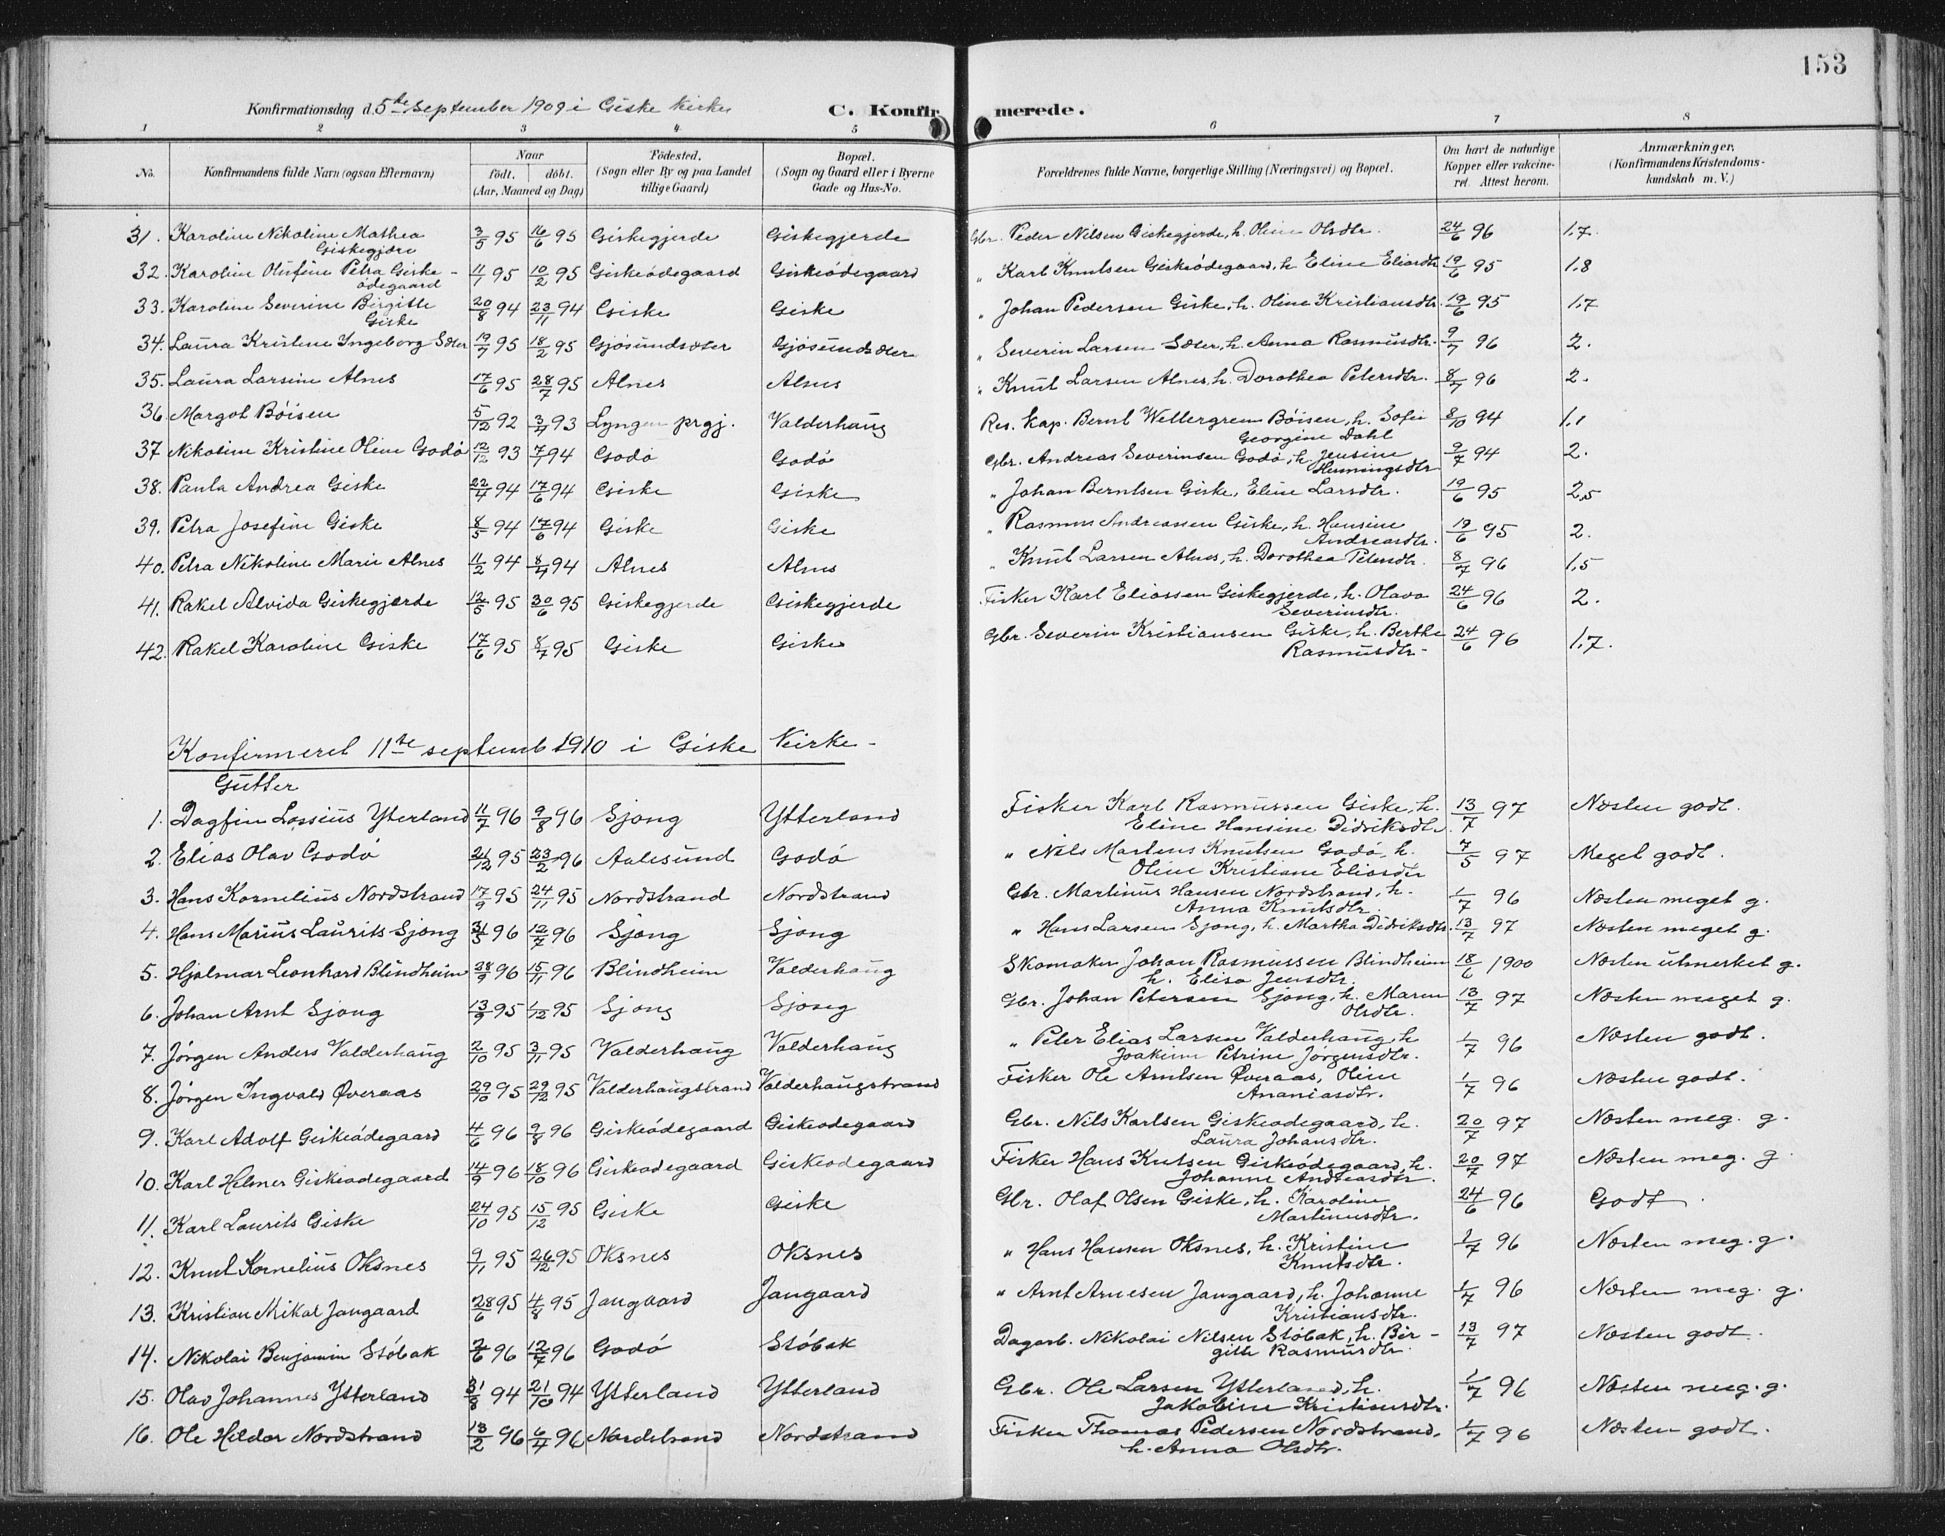 153
Konfirmationsdag d. 5te september 1909 i Giske kirke C. Konfirmerede.
1 2 3 4 5 6 7 8
No. Konfirmandens fulde Navn (ogsaa Efternavn) Naar født. døbt. (Aar, Maaned og Dag) Fødested. (Sogn eller By og paa Landet tillige Gaard) Bopæl. (Sogn og Gaard eller i Byerne Gade og Hus-No. Forældrenes fulde Navne, borgerlige Stilling (Næringsvei) og Bopæl. Om havt de naturlige Kopper eller vakcineret. Attest herom. Anmærkninger. (Konfirmandens Kristendomskundskab m. V.)
31. Karoline Nikoline Mathea Giskegjære 3/5 95 16/6 95 Giskegjerde Giskegjerde Gbr. Peder Nilsen Giskegjerde, h. Oline Olsdtr. 24/6 96 1.7.
32. Karoline Olufine Petra Giskeødegaard 11/1 95 10/2 95 Giskeødegaard Giskeødegaard " Karl Knutsen Giskeødegaard, h Eline Eliasdtr 19/6 95 1.8
33. Karoline Severine Birgitte Giske 20/8 94 23/11 94 Giske Giske " Johan Pedersen Giske, h. Oline Kristiansdtr. 19/6 95 1.7
34. Laura Kristine Ingeborg Sæter 19/7 95 18/2 95 Gjøsundsæter Gjøsundsæter " Severin Larsen Sæter, h. Anna Rasmusdtr. 9/7 96 2.
35. Laura Larsine Alnes 17/6 95 28/7 95 Alnes Alnes " Knut Larsen Alnes, h. Dorothea Petersdtr. 8/7 96 2.
36. Margot Bøisen 5/12 92 3/4 93 Lyngen prgj. Valderhaug Res. kap. Bernt Wettergreen Bøisen, h. Sofie Georgine Dahl 8/10 94 1.1
37 Nikoline Kristine Oline Godø 12/12 93 7/1 94 Godø Godø Gbr. Andreas Severinsen Godø, h. Jensine Henningsdtr 9/7 94 2.
38. Paula Andrea Giske 22/4 94 17/6 94 Giske Giske " Johan Berntsen Giske, Eline Larsdtr. 19/6 95 2,5
39. Petra Josefine Giske 8/5 94 17/6 94 Giske Giske " Rasmus Andreassen Giske, h. Hansine Andreasdtr. 19/6 95 2.
40. Petra Nikoline Marie Alnes 11/2 94 8/4 94 Alnes Alnes " Knut Larsen Alnes, h. Dorothea Petersdtr. 8/7 96 1,5
41. Rakel Alvida Giskegjerde 12/5 95 30/6 95 Giskegjerde Giskegjerde Fisker Karl Eliassen Giskegjerde, h. Olava Severinsdtr. 24/6 96 2.
42. Rakel Karoline Giske 17/6 95 8/7 95 Giske Giske Gbr. Severin Kristiansen Giske, h. Berthe Rasmusdtr. 24/6 96 1.7.
Konfirmeret 11te septemb 1910 i Giske Kirke -
Gutter
1. Dagfin Lossius Ytterland 11/7 96 9/8 96 Sjong Ytterland Fisker Karl Rasmussen Giske, h. Eline Hansine Didriksdtr. 13/7 97 Næsten godt.
2. Elias Olav Godø 21/12 95 23/2 96 Aalesund Godø " Nils Martens Knutsen Godø, h. Oline Kristiane Eliasdtr 7/5 97 Meget godt.
3. Hans Kornelius Nordstrand 17/9 95 24/11 95 Nordstrand Nordstrand Gbr. Martinus Hansen Nordstrand, h. Anna Knutsdtr. 1/7 96 Næsten meget g.
4. Hans Marius Laurits Sjong 31/5 96 12/7 96 Sjong Sjong " Hans Larsen Sjong, h. Martha Didriksdtr. 13/7 97 Næsten meget g.
5. Hjalmar Leonhard Blindheim 28/9 96 15/11 96 Blindheim Valderhaug Skomaker Johan Rasmussen Blindheim h. Elisa Jensdtr. 18/6 1900 Næsten utmerket g.
6. Johan Arnt Sjong 13/9 95 1/12 95 Sjong Sjong Gbr. Johan Petersen Sjong, h. Maren Olsdtr. 13/7 97 Næsten meget g.
7. Jørgen Anders Valderhaug 2/10 95 3/11 95 Valderhaug Valderhaug " Peter Elias Larsen Valderhaug, h Joakim Petrine Jørgensdtr. 1/7 96 Næsten godt.
8. Jørgen Ingvald Overaas 29/10 95 29/12 95 Valderhaugstrand Valderhaugstrand Fisker Ole Arntsen Overaas, Oline Ananiasdtr. 1/7 96 Næsten godt.
9. Karl Adolf Giskeødegaard 4/6 96 9/8 96 Giskeødegaard Giskeødegaard Gbr. Nils Karlsen Giskeødegaard, h. Laura Johansdtr. 20/7 97 Næsten meg. g.
10. Karl Helmer Giskeødegaard 14/9 96 18/10 96 Giskeødegaard Giskeødegaard Fisker Hans Knutsen Giskeødegaard, h. Johanne Andreasdtr. 20/7 97 Næsten meg. g.
11. Karl Laurits Giske 24/10 95 15/12 95 Giske Giske Gbr. Olaf Olsen Giske, h. Karoline Martinusdtr. 24/6 96 Godt
12. Knut Kornelius Oksnes 9/11 95 26/12 95 Oksnes Oksnes " Hans Hansen Oksnes, h. Kristine Knutsdtr. 1/7 96 Næsten meg. g.
13. Kristian Mikal Jangaard 28/6 95 4/8 95 Jangaard Jangaard " Arnt Arnesen Jangaard, h. Johanne Kristiansdtr. 1/7 96 Næsten meg. g.
14. Nikolai Benjamin Støbak 7/6 96 12/7 96 Godø Støbak Dagarb. Nikolai Nilsen Støbak, h. Birgitte Rasmusdtr. 13/7 97 Næsten godt.
15. Olav Johannes Ytterland 31/8 94 21/10 94 Ytterland Ytterland Gbr. Ole Larsen Ytterland, h. Jakobine Kristiansdtr. 1/7 96 Næsten meg. g.
16. Ole Hildor Nordstrand 13/2 96 6/4 96 Nordstrand Nordstrand Fisker Thomas Pedersen Nordstrand, h. Anna Olsdtr. 1/7 96 Næsten godt.